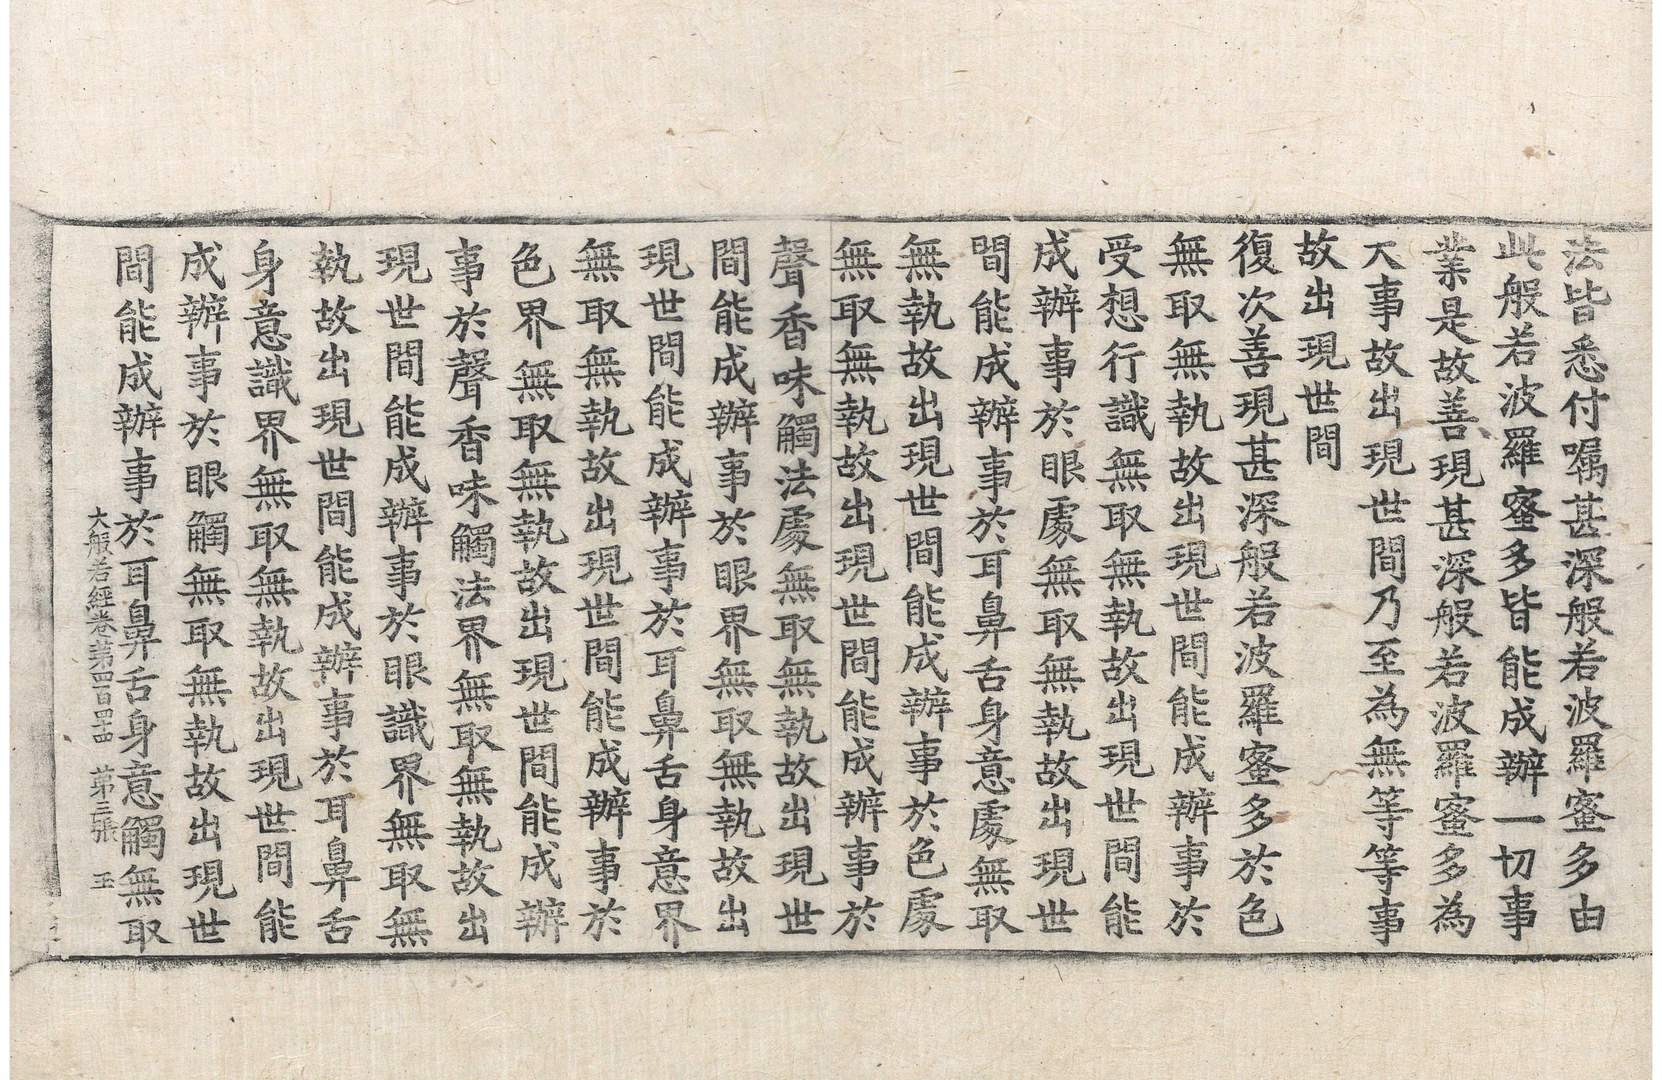 法皆悉付囑甚深般若波羅蜜多由
此般若波羅蜜多皆能成辦一切事
業是故善現甚深般若波羅蜜多為
大事故出現世間乃至為無等等事
故出現世間
復次善現甚深般若波羅蜜多於色
無取無執故出現世間能成辦事於
受想行識無取無執故出現世間能
成辦事於眼處無取無執故出現世
間能成辦事於耳鼻舌身意處無取
無執故出現世間能成辦事於色處
無取無執故出現世間能成辦事於
聲香味觸法處無取無執故出現世
間能成辦事於眼界無取無執故出
現世間能成辦事於耳鼻舌身意界
無取無執故出現世間能成辦事於
色界無取無執故出現世間能成辦
事於聲香味觸法界無取無執故出
現世間能成辦事於眼識界無取無
執故出現世間能成辦事於耳鼻舌
身意識界無取無執故出現世間能
成辦事於眼觸無取無執故出現世
間能成辦事於耳鼻舌身意觸無取
大般若經卷第四百四十四 第三張